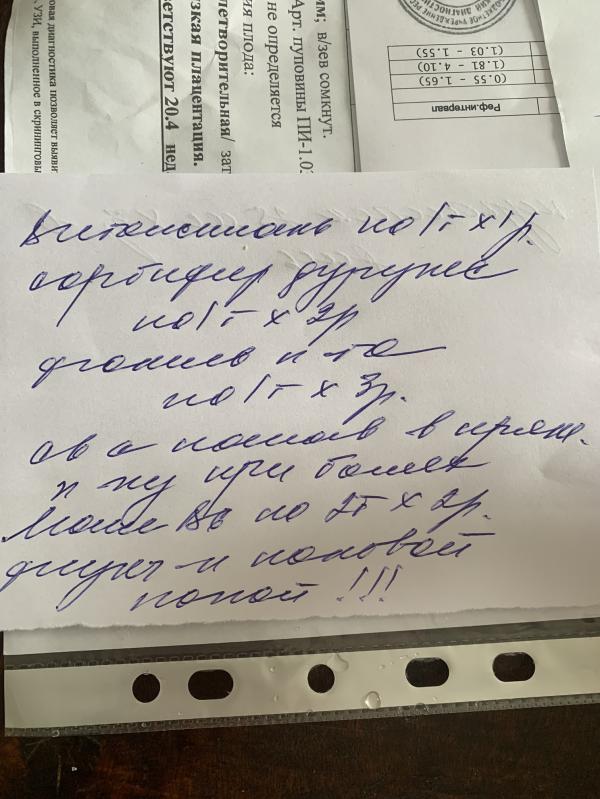 им; в/зев сомкнут.
Арт. пуповины ПИ-1.0
не определяется
ия плода:
летворительная/ зат
зкая плацентация.
етствуют 20.4 нед
овая диагностика позволяет выяви
УЗИ, выполненное в скрининговы
Реф.интервал
(0.55 - 1.65)
(1.81 - 4.10)
(1.03 - 1.55)
по 1т х 1р.
сорбифер дурулес
по 1т х 2р
фолиев к-та
по 1т х 3р.
св с папав в прям.
к-ку при болях
Магне В6 по 2т х 2р.
половой
покой !!!